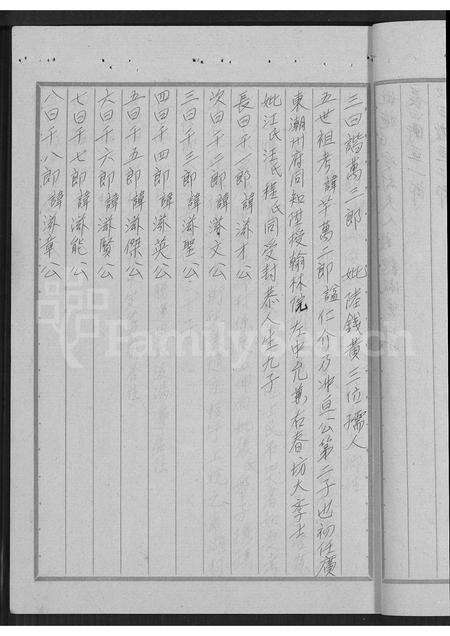 三曰諧萬三郎 妣陸錢黃三位孺人
五世祖考諱羊萬二郎諡仁介乃冲亘公第二子也初任廣
東潮州府同知陞授翰林院左中允兼右春坊大學士
妣江氏汪氏程氏同受封恭人生九子
長曰千一郎諱滋才公
次曰千二郎諱滋文公
三曰千三郎諱滋聖公
四曰千四郎諱滋英公
五曰千五郎諱滋傑公
六曰千六郎諱滋賢公
七曰千七郎諱滋能公
八曰千八郎諱滋章公
FamilySearch